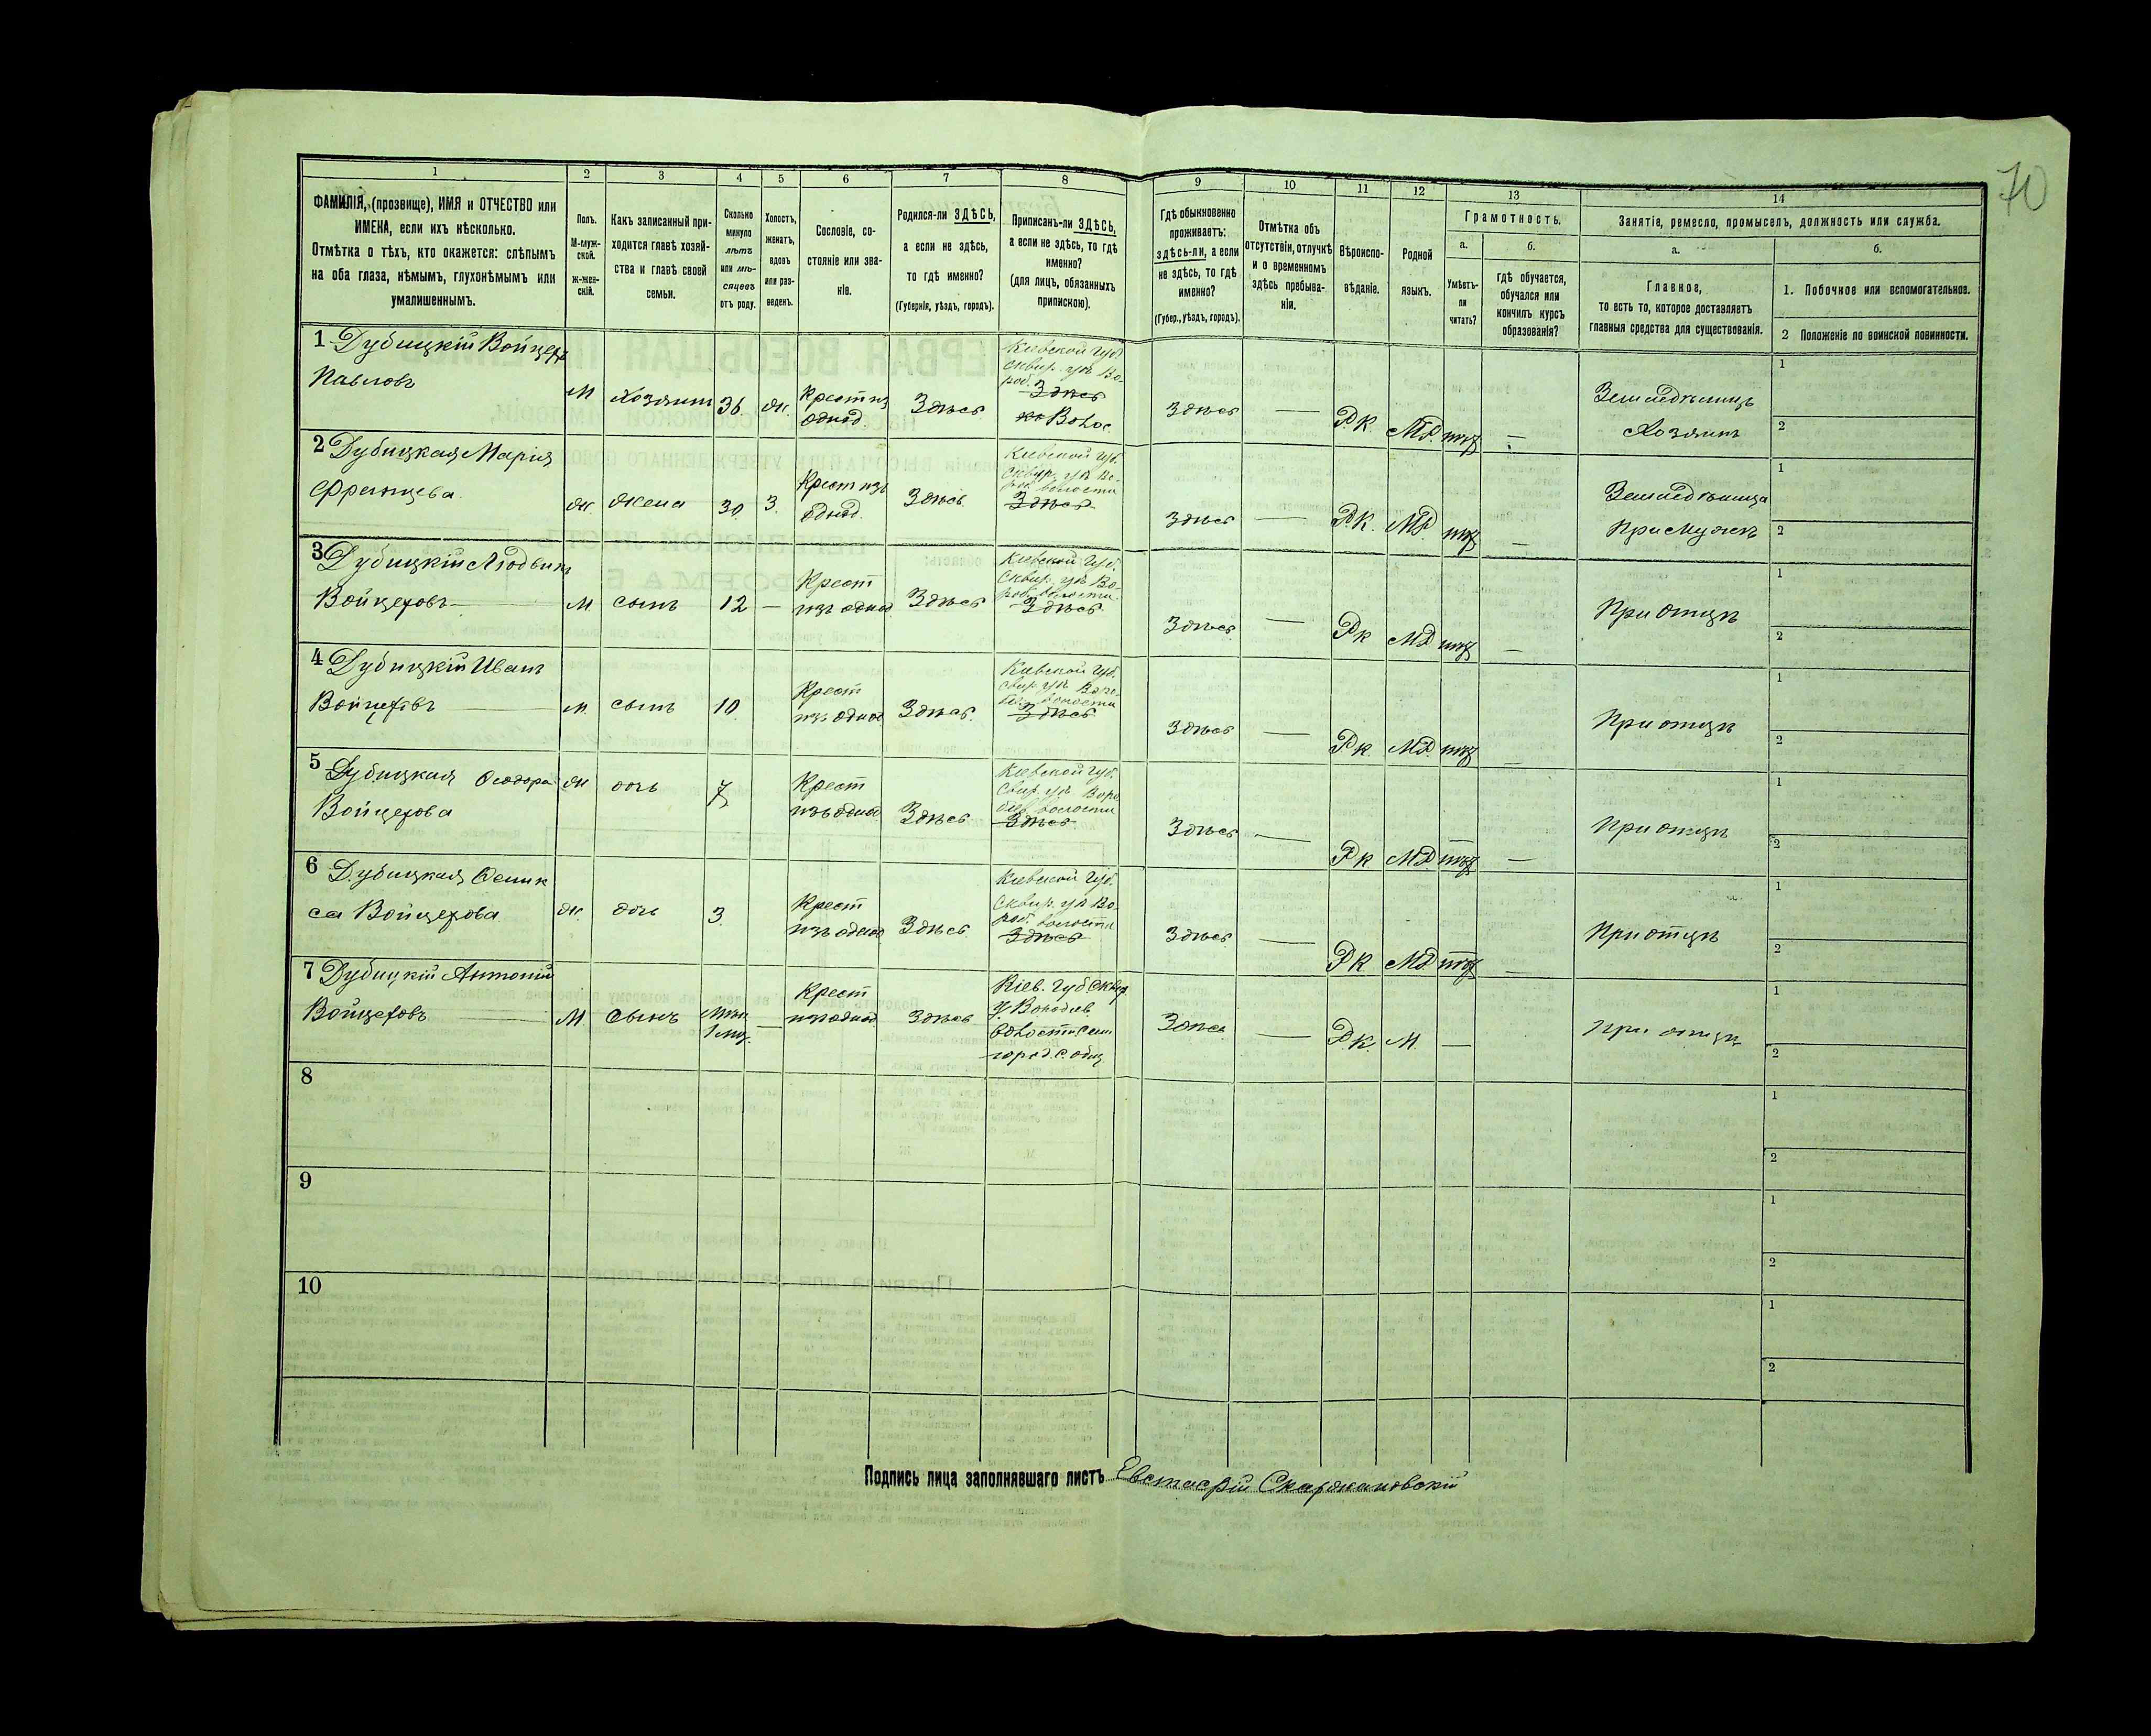 70
1 2 3 4 5 6 7 8 9 10 11 12 13 14
ФАМИЛІЯ, (прозвище), ИМЯ и ОТЧЕСТВО или
ИМЕНА, если ихъ нѣсколько.
Отмѣтка о тѣхъ, кто окажется: слѣпымъ
на оба глаза, нѣмымъ, глухонѣмымъ или
умалишеннымъ.
Полъ.
М-муж-
ской.
ж-жен-
скій.
Какъ записанный при-
ходится главѣ хозяй-
ства и главѣ своей
семьи.
Сколько
минуло
лѣтъ
или мѣ-
сяцевъ
отъ роду.
Холостъ,
женатъ,
вдовъ
или раз-
веденъ.
Сословіе, со-
стояніе или зва-
ніе.
Родился-ли ЗДѢСЬ,
а если не здѣсь,
то гдѣ именно?
(Губернія, уѣздъ, городъ).
Приписанъ-ли ЗДѢСЬ,
а если не здѣсь, то гдѣ
именно?
(для лицъ, обязанныхъ
припискою).
Гдѣ обыкновенно
проживаетъ:
здѣсь-ли, а если
не здѣсь, то гдѣ
именно?
(Губер., уѣздъ, городъ).
Отмѣтка объ
отсутствіи, отлучкѣ
и о временномъ
здѣсь пребыва-
ніи.
Вѣроиспо-
вѣданіе.
Родной
языкъ.
Грамотность.
а.
Умѣетъ-
ли
читать?
б.
гдѣ обучается,
обучался или
кончилъ курсъ
образованія?
Занятіе, ремесло, промыселъ, должность или служба.
а.
Главное,
то есть то, которое доставляетъ
главныя средства для существованія.
б.
1. Побочное или вспомогательное.
2 Положеніе по воинской повинности.
1 Дубицкій Войцехъ
Павловъ
М Хозяинъ 36. ж.
Крест из
однод.
Здѣсь
Кіевской Губ.
Сквир. уѣ. Во-
род.
Здѣсь
Волос.
Здѣсь — Р.К.
Земледѣлецъ
Хозяинъ
1
2
2 Дубицкая Марія
Францева.
ж. жена 30. З.
Крест изъ
однод.
Здѣсь
Кіевской Губ.
Сквир. уѣ. Во-
род. волости
Здѣсь
Здѣсь — Р.К.
При мужѣ
1
2
3 Дубицкій Людвигъ
Войцеховъ —
М сынъ 12 —
Крест
изъ однод
Здѣсь
Кіевской Губ.
Сквир. уѣ. Во-
род. волости.
Здѣсь
Здѣсь — Рк
При отцѣ
1
2
4 Дубицкій Иванъ
Войцеховъ —
М. сынъ 10
Крест
изъ однод
Здѣсь.
Кіевской Губ.
волости
Здѣсь
Здѣсь — Рк.
При отцѣ
1
2
5 Дубицкая Ѳеодора
Войцехова
ж дочь 7
Крест
изъ однод.
Здѣсь
Кіевской Губ.
волости
Здѣсь
Здѣсь — Рк
При отцѣ
1
2
6 Дубицкая Фелик
са Войцехова.
ж. дочь 3.
Крест
изъ однод
Здѣсь
Кіевской Губ.
Сквир. уѣ Во-
род. волости
Здѣсь
Здѣсь — РК
При отцѣ
1
2
7 Дубицкій Антоній
Войцеховъ —
М Сынъ —
Крест
изъ однод.
Здѣсь
Кіев. Губ Сквир.
У.
Волости
Здѣсь — Р.К. М. —
При отцѣ
1
2
8
1
2
9
1
2
10
1
2
Подпись лица заполнявшаго листъ